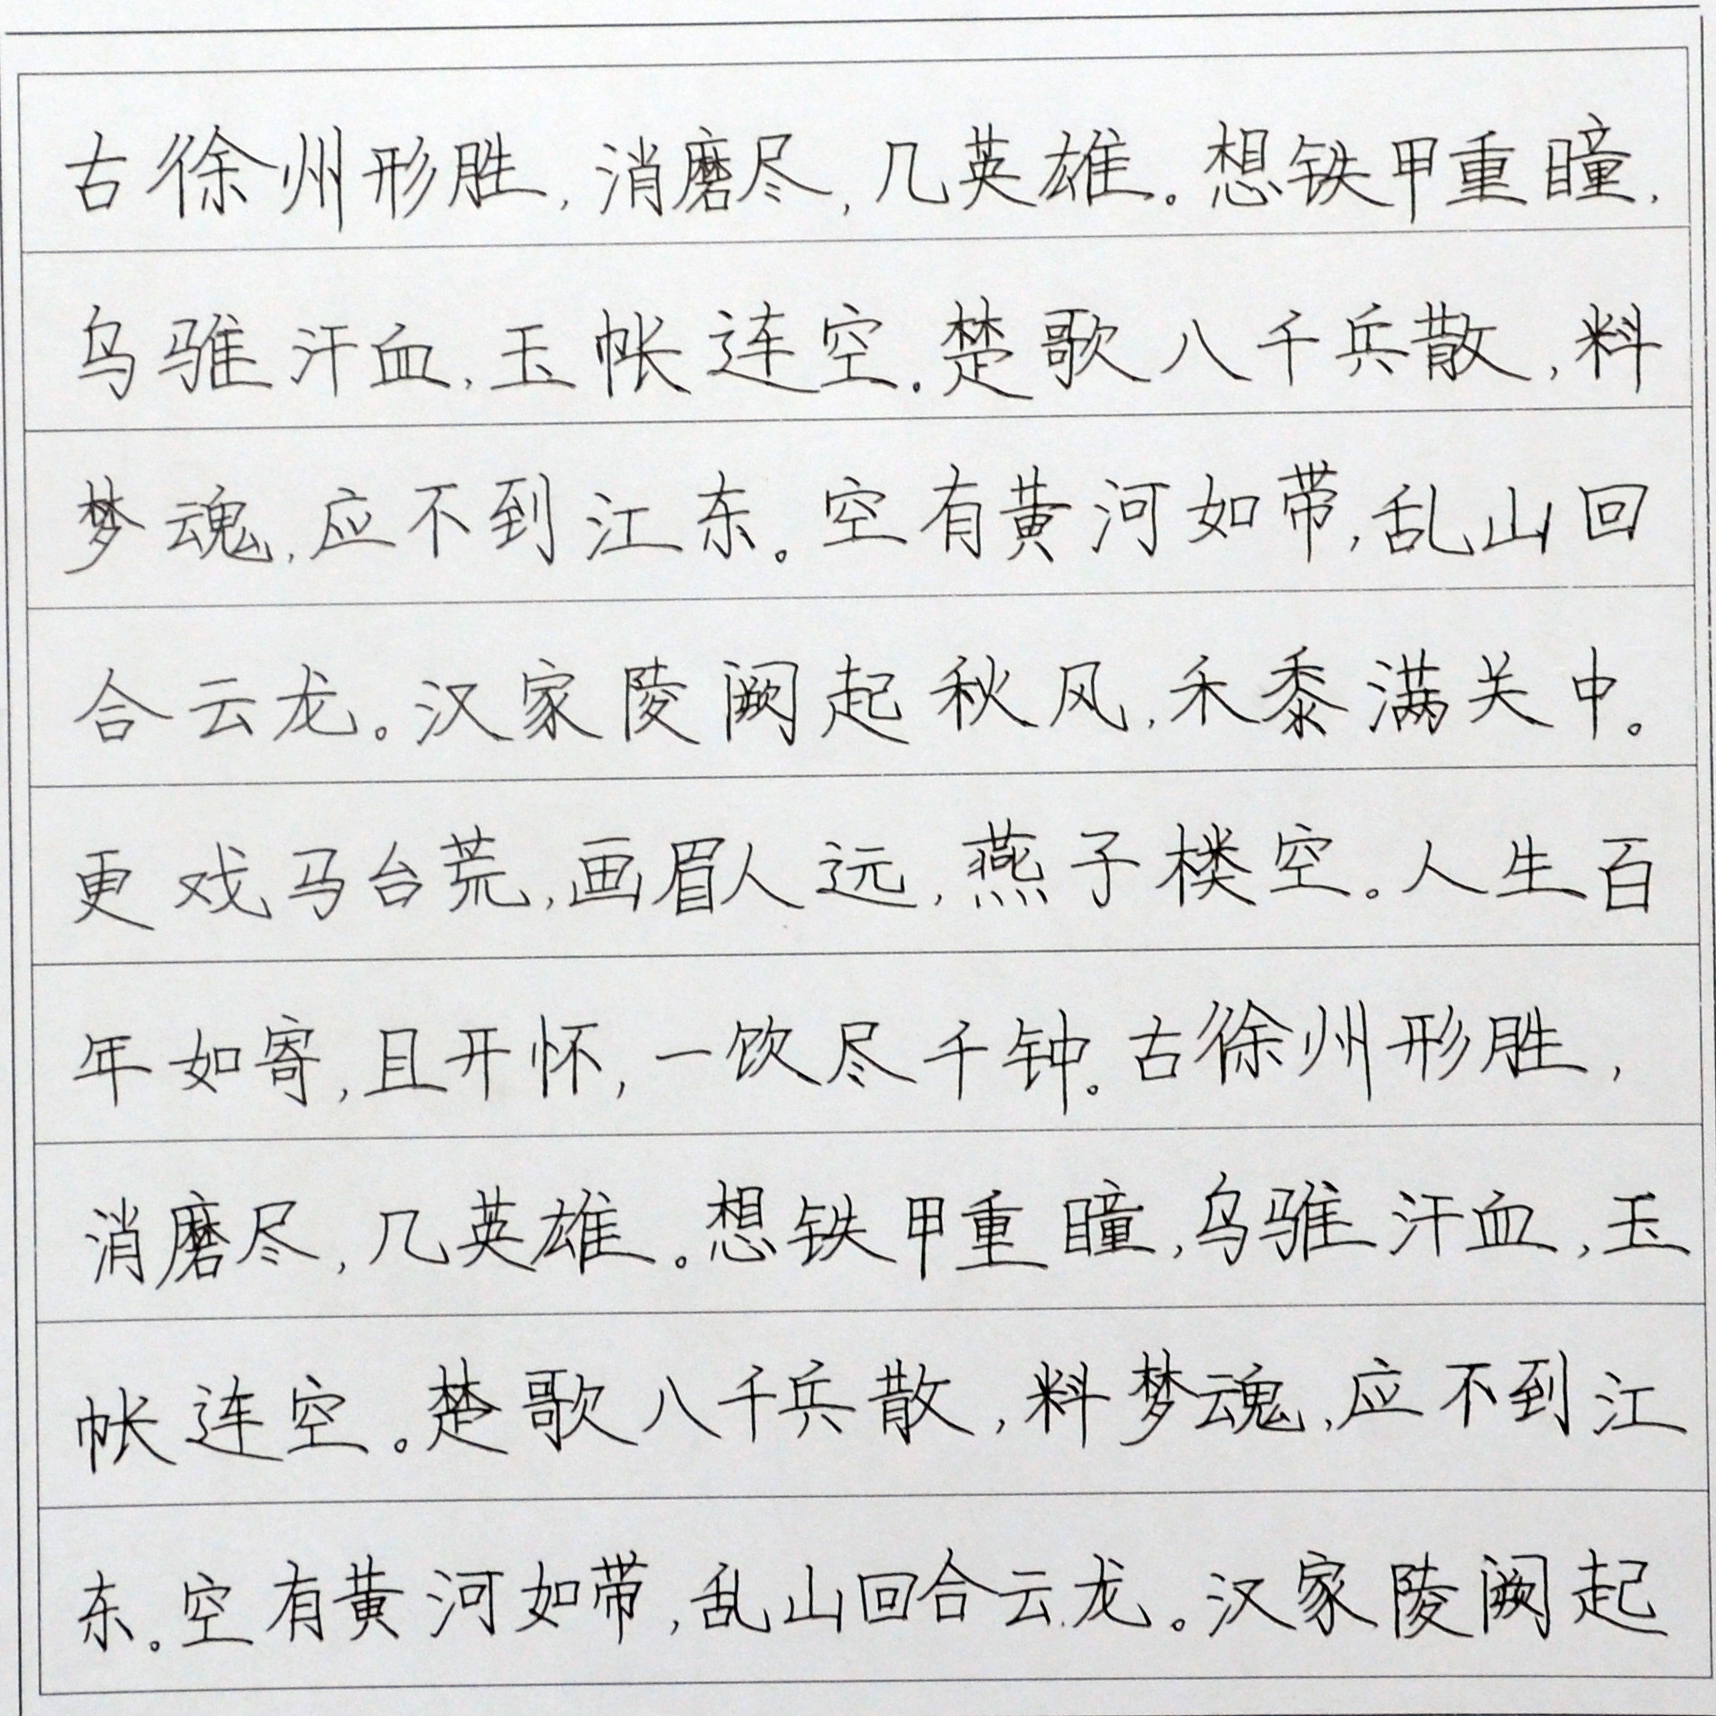 古徐州形胜，消磨尽，几英雄。想铁甲重瞳，
乌骓汗血，玉帐连空。楚歌八千兵散，料
梦魂，应不到江东。空有黄河如带，乱山回
合云龙。汉家陵阙起秋风，禾黍满关中。
更戏马台荒，画眉人远，燕子楼空。人生百
年如寄，且开怀，一饮尽千钟。古徐州形胜，
消磨尽，几英雄。想铁甲重瞳，乌骓汗血，玉
帐连空。楚歌八千兵散，料梦魂，应不到江
东。空有黄河如带，乱山回合云龙。汉家陵阙起